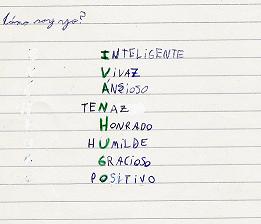 Cómo soy yo?
INTELIGENTE
VIVAZ
ÁNSIOSO
TENAZ
HONRADO
HUMILDE
GRACIOSO
POSITIVO